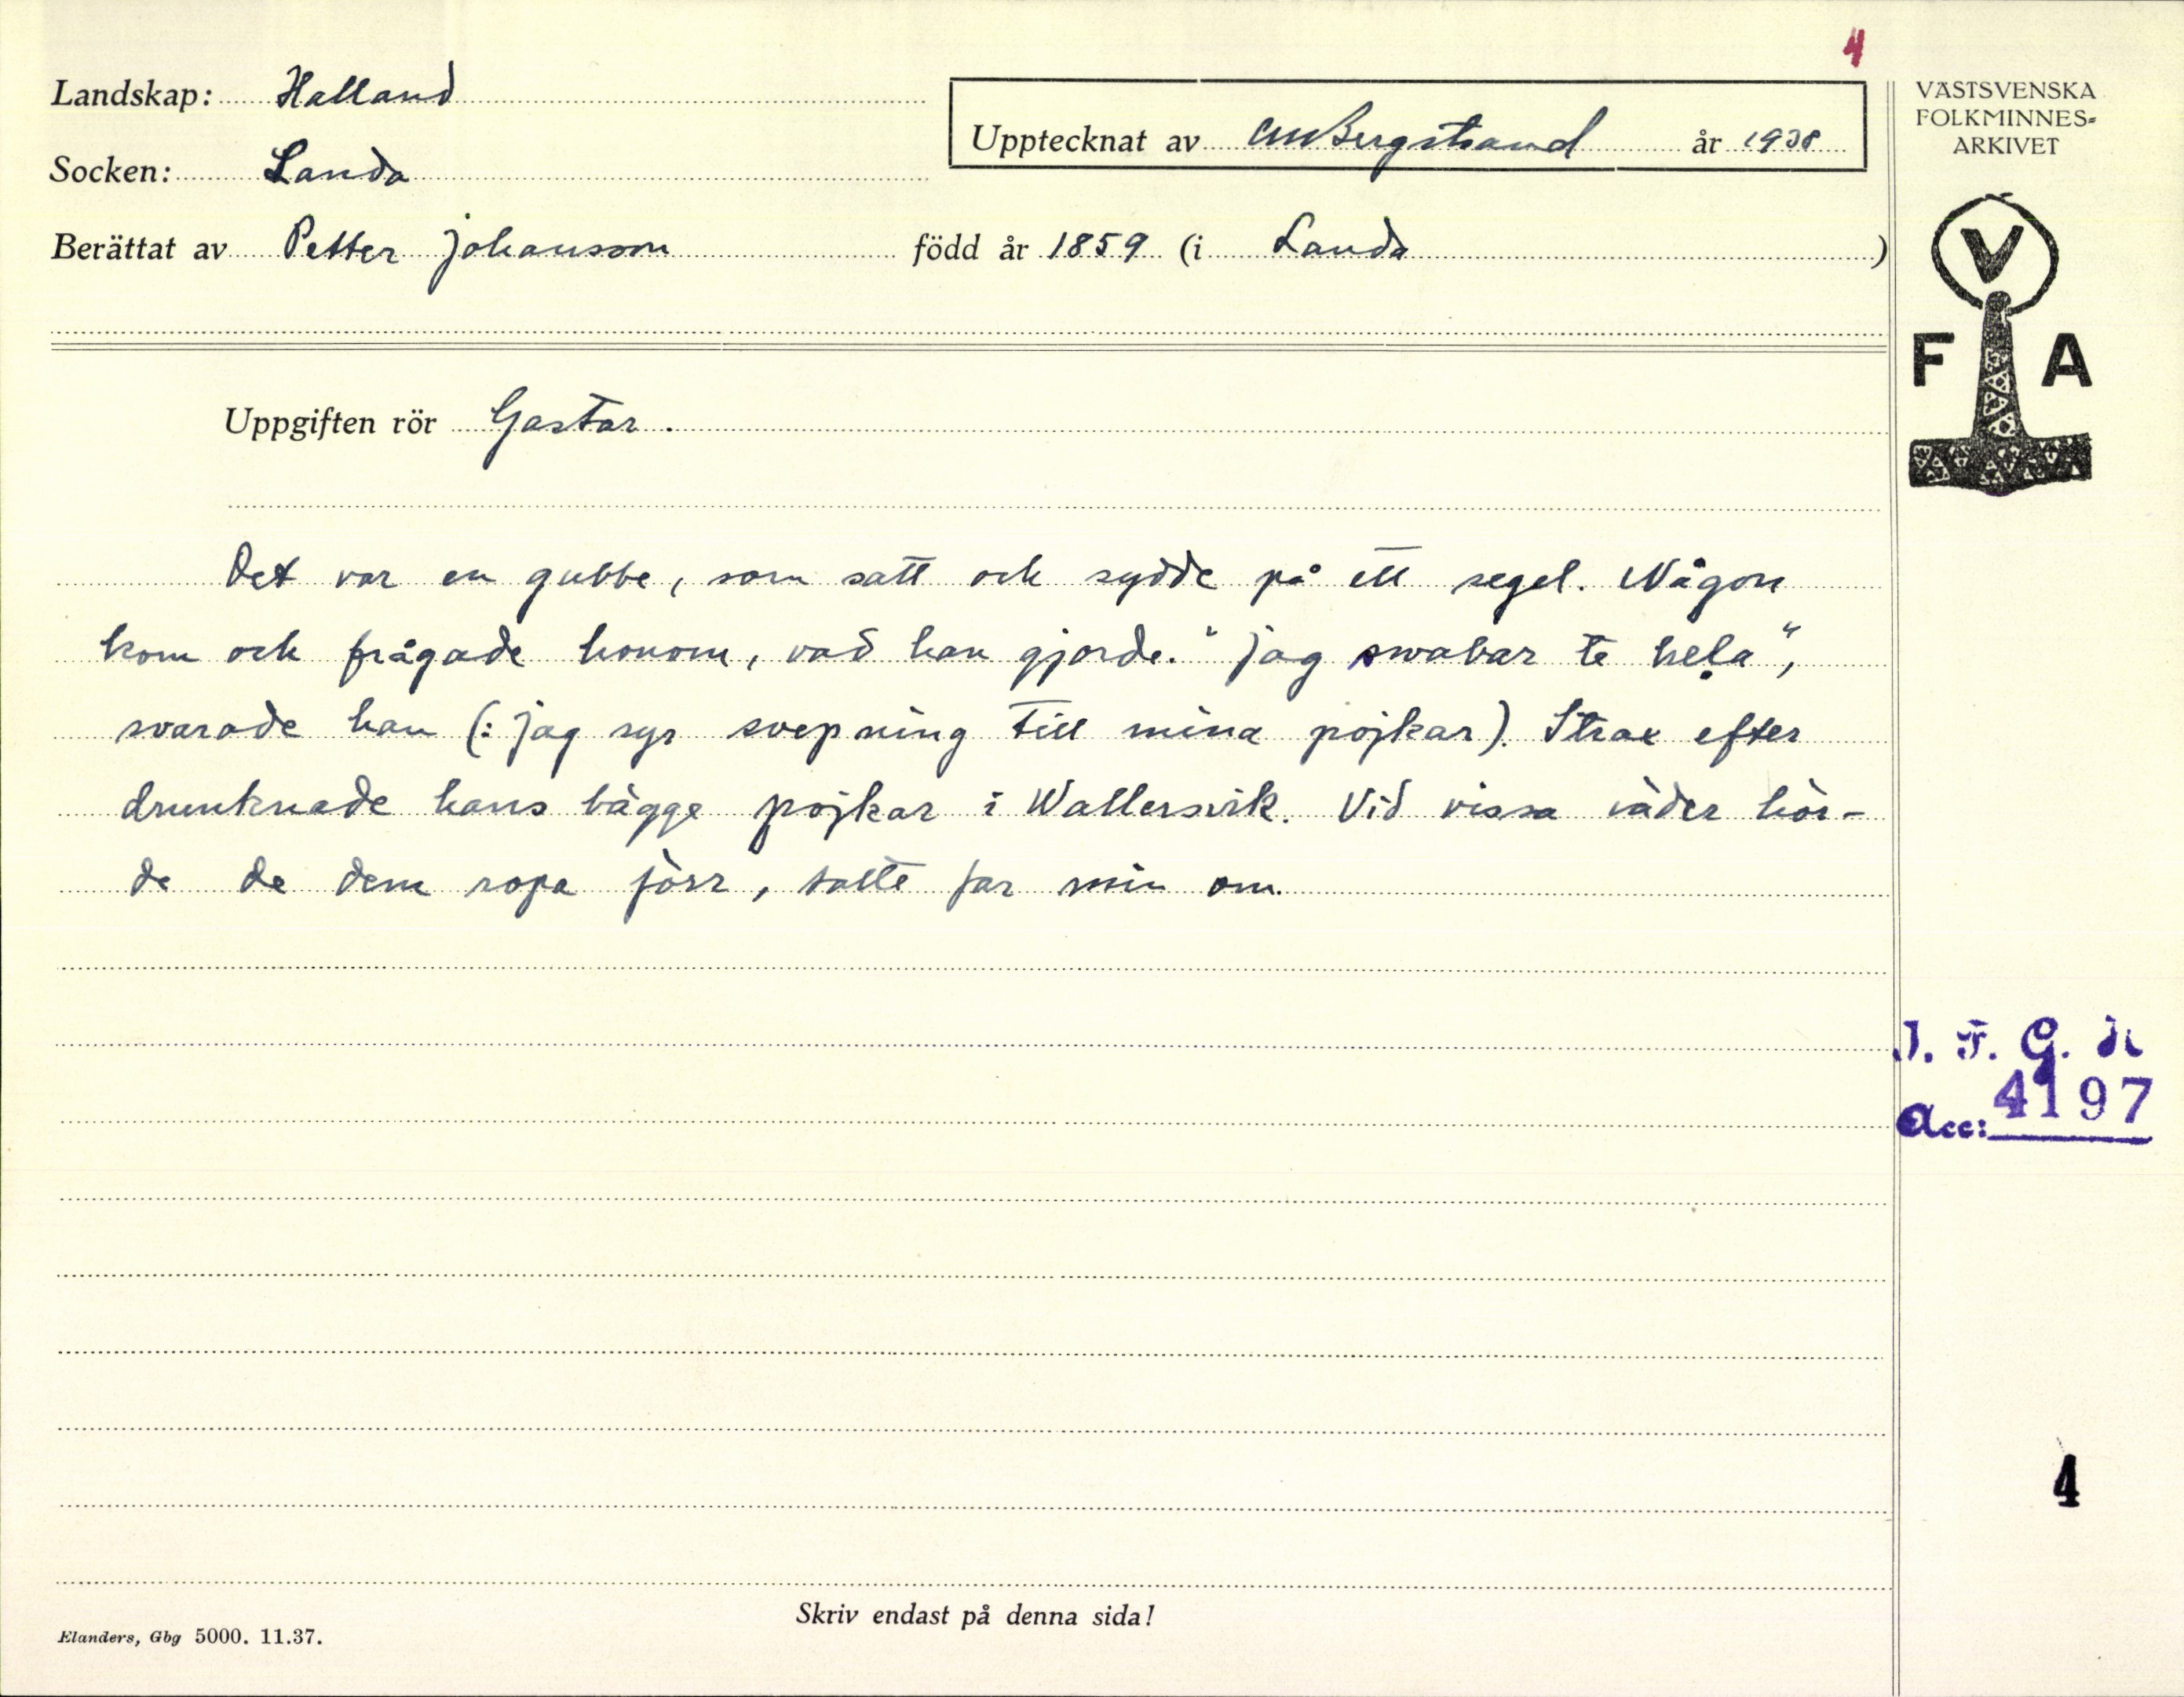 4
Landskap: Halland
Socken: Landa
Upptecknat av CMBergstrand år 1938
Berättat av Petter Johansson född år 1859 (i Landa )
VÄSTSVENSKA
FOLKMINNES-
ARKIVET
V
F A
Uppgiften rör Gastar.
Det var en gubbe, som satt och sydde på ett segel. Någon
kom och frågade honom, vad han gjorde. "Jag swabar te hela",
svarade han (: jag syr svepning till mina pojkar). Strax efter
drunknade hans bägge pojkar i Wallersvik. Vid vissa väder hör-
de de dem ropa förr, talte far min om.
I. F. G. 
Acc: 4197
4
Skriv endast på denna sida!
Elanders, Gbg 5000. 11.37.